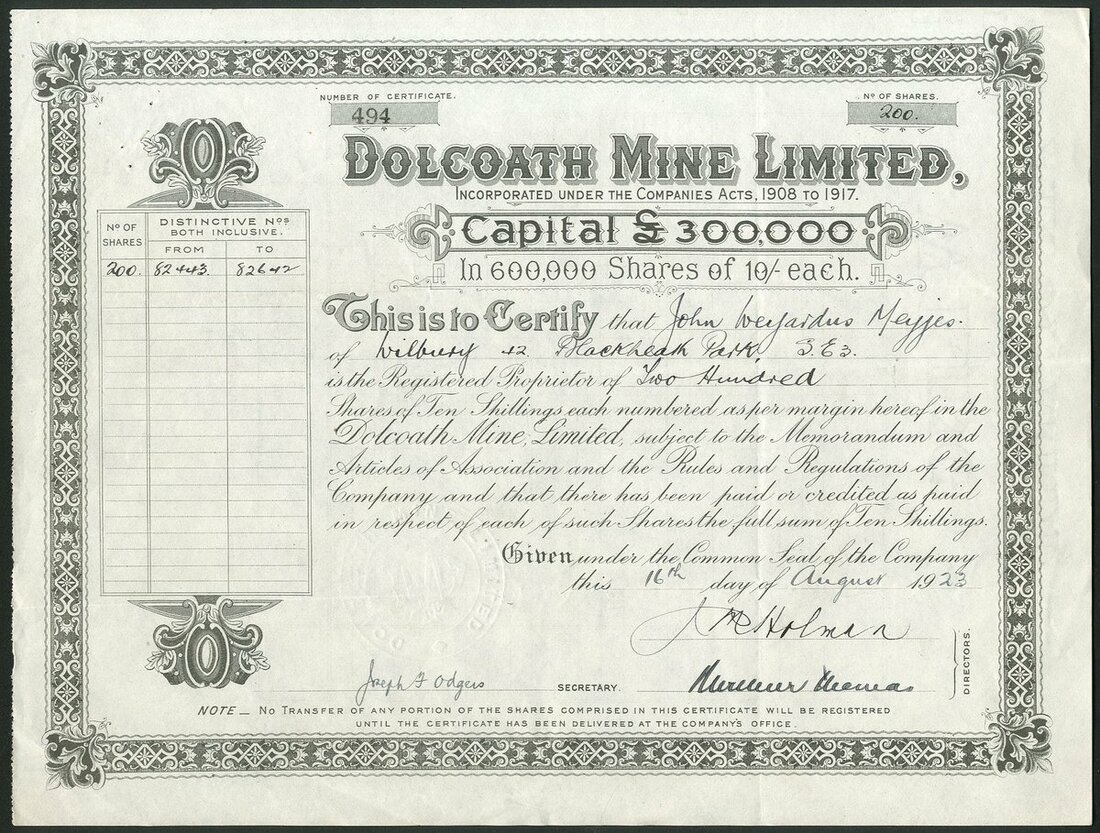 NUMBER OF CERTIFICATE.
494
No OF SHARES.
200.
DOLCOATH MINE LIMITED,
INCORPORATED UNDER THE COMPANIES ACTS, 1908 TO 1917.
Capital £300,000
In 600,000 Shares of 10/- each.
No OF SHARES
DISTINCTIVE Nos BOTH INCLUSIVE.
FROM TO
200. 82443. 82642
This is to Certify that John Meyjes.
of Wilbury 42 Blackheath Park, S.E3.
is the Registered Proprietor of Two Hundred
Shares of Ten Shillings each numbered as per margin hereof in the
Dolcoath Mine, Limited, subject to the Memorandum and
Articles of Association and the Rules and Regulations of the
Company and that there has been paid or credited as paid
in respect of each of such Shares the full sum of Ten Shillings.
Given under the Common Seal of the Company
this 16th day of August 1923
Holman
DIRECTORS.
Joseph F Odgers SECRETARY. Thomas
NOTE _ No TRANSFER OF ANY PORTION OF THE SHARES COMPRISED IN THIS CERTIFICATE WILL BE REGISTERED
UNTIL THE CERTIFICATE HAS BEEN DELIVERED AT THE COMPANY'S OFFICE.